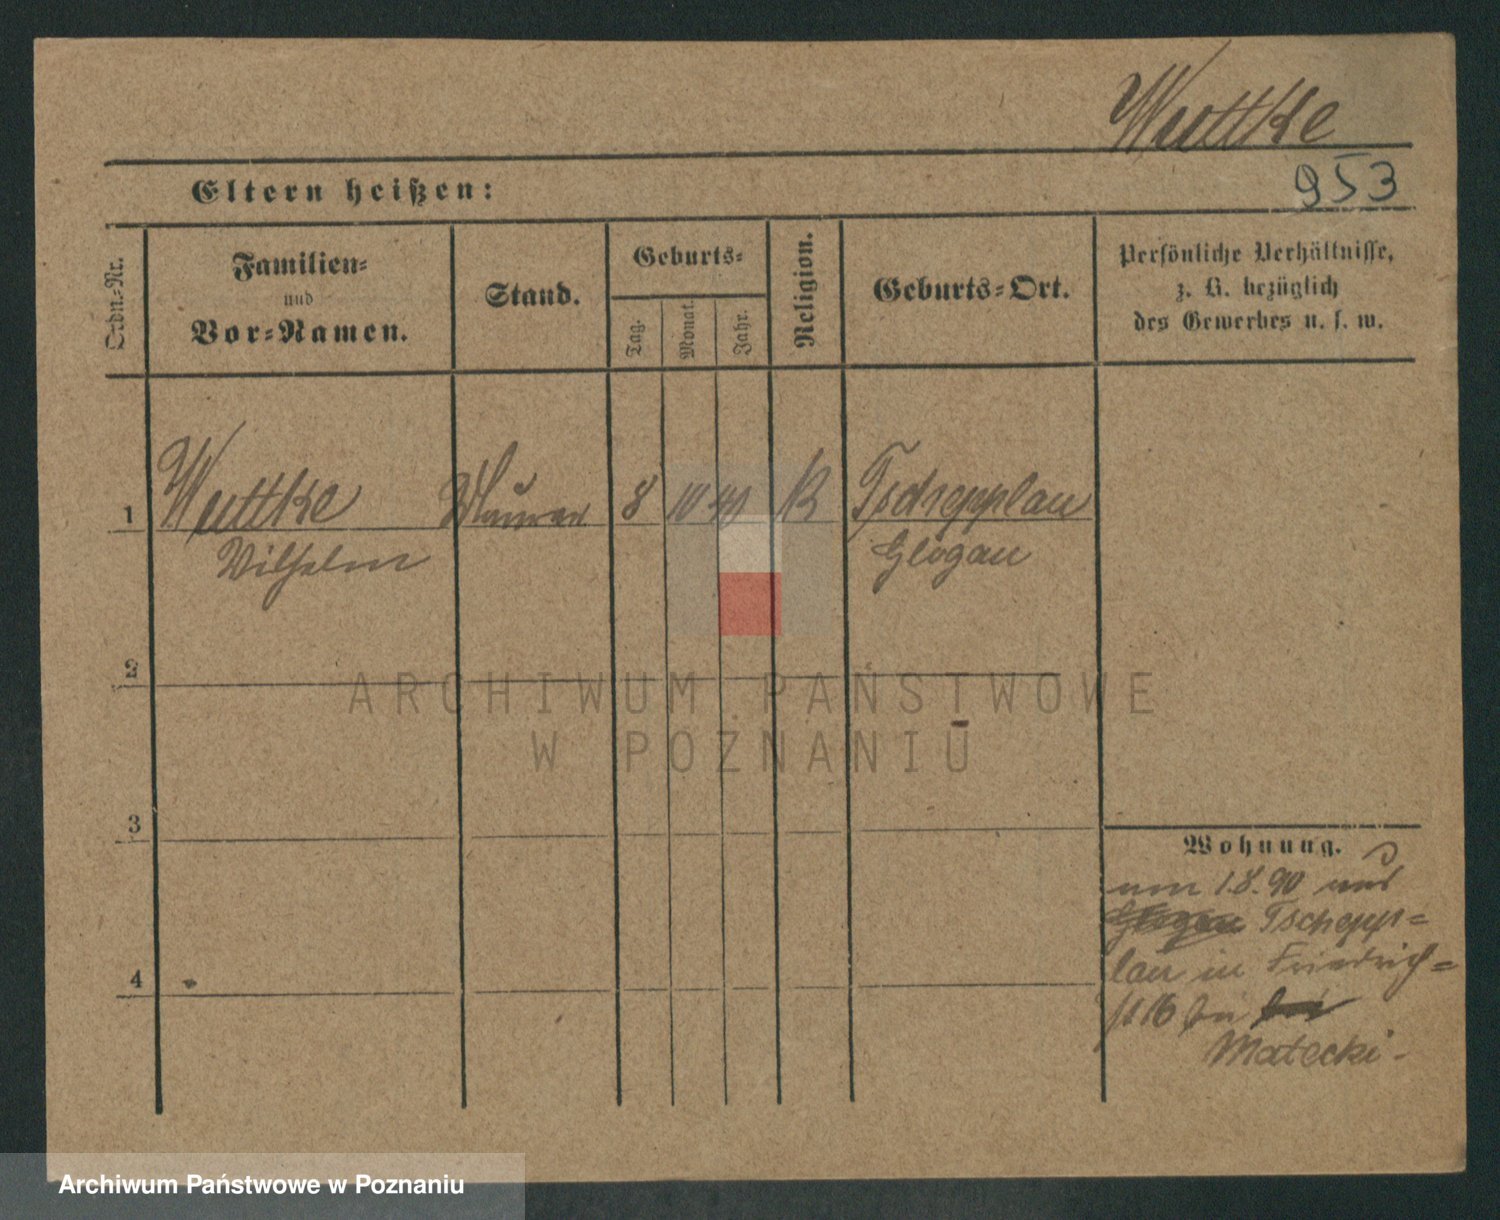 Wuttke
953
Eltern heißen:
Ordn.-Nr.
Familien-
und
Vor-Namen.
Stand.
Geburts-
Tag.
Monat.
Jahr.
Religion.
Geburts-Ort.
Persönliche Verhältnisse,
z. B. bezüglich
des Gewerbes u. s. w.
1 Wuttke Maurer 8 10 40 K Tschepplau
Wilhelm Glogau
2
ARCHIWUM PAŃSTWOWE
W POZNANIU
3
Wohnung.
1.8.90 aus
Glogau Tschepp=
lau in Friedrich=
st 16 bei
Matecki
4
Archiwum Państwowe w Poznaniu